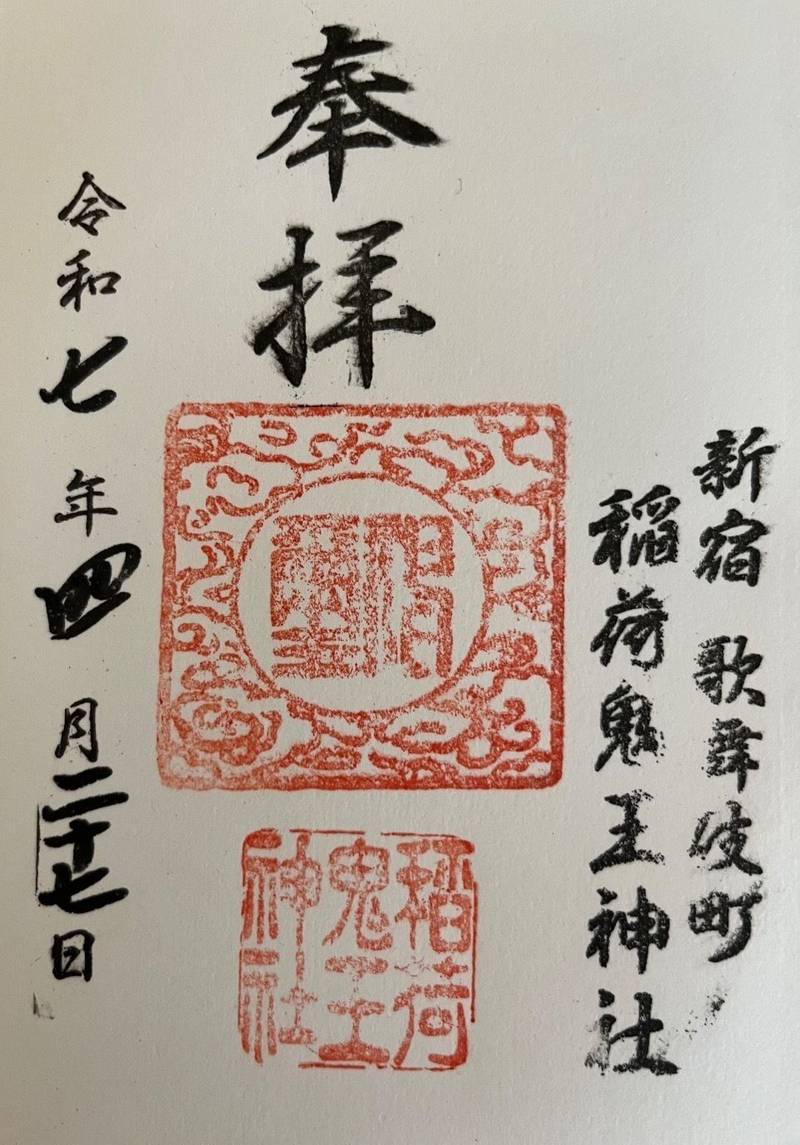 新宿 歌舞伎町
稲荷鬼王神社
奉拝
稲荷
鬼王
神社
令和七年四月二十七日